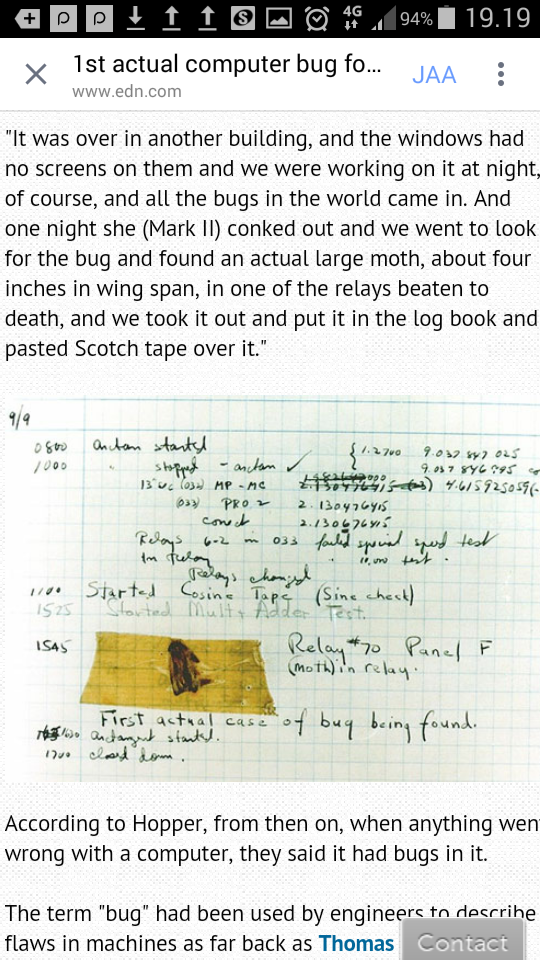 94% 19.19
4G
1st actual computer bug fo...
JAA
www.edn.com
"It was over in another building, and the windows had
no screens on them and we were working on it at night,
of course, and all the bugs in the world came in. And
one night she (Mark II) conked out and we went to look
for the bug and found an actual large moth, about four
inches in wing span, in one of the relays beaten to
death, and we took it out and put it in the log book and
pasted Scotch tape over it."
9/9
0800 antan started
1000 " stopped - antan ✓ { 1.2700 9.037 847 025
9.037 846 995
13" uc (032) MP - MC 4.615925059(-
(033) PRO 2 2.130476415
correct 2.130676415
Relays 6-2 in 033 failed special speed test
in relay " 10,000 test.
Relays changed
1100 Started Cosine Tape (Sine check)
1525 Started Mult+ Adder Test.
1545 Relay #70 Panel F
(moth) in relay.
First actual case of bug being found.
1630 antangent started.
1700 closed down.
According to Hopper, from then on, when anything wen
wrong with a computer, they said it had bugs in it.
The term "bug" had been used by engineers to describe
flaws in machines as far back as Thomas
Contact